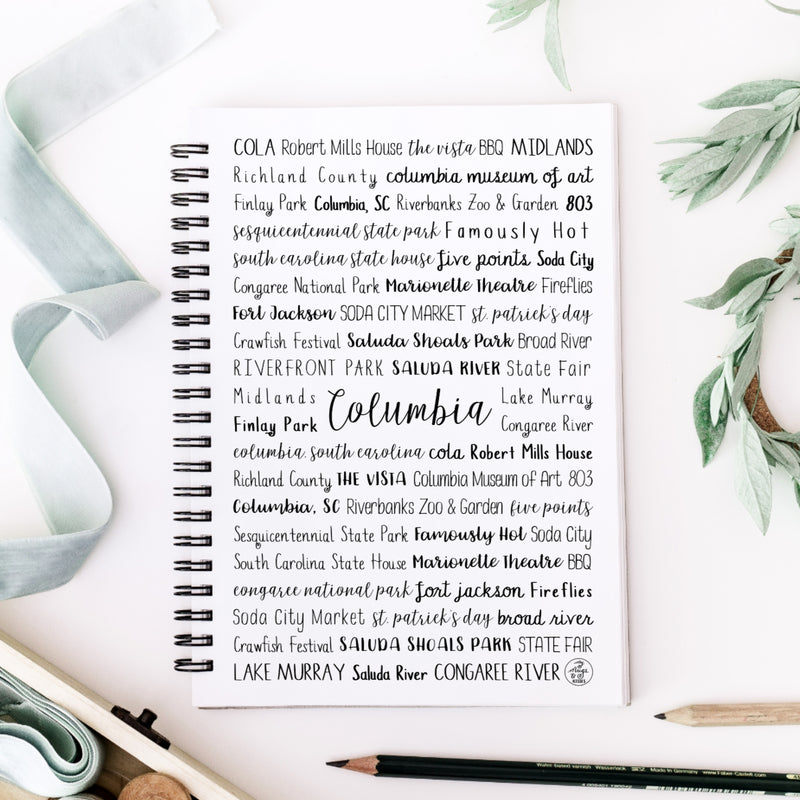 COLA Robert Mills House the vista BBQ MIDLANDS
Richland County columbia museum of art
Finlay Park Columbia, SC Riverbanks Zoo & Garden 803
sesquicentennial state park Famously Hot
south carolina state house five points Soda City
Congaree National Park Marionelle Theatre Fireflies
Fort Jackson SODA CITY MARKET st. patrick's day
Crawfish Festival Saluda Shoals Park Broad River
RIVERFRONT PARK SALUDA RIVER State Fair
Midlands Lake Murray
Columbia
Finlay Park Congaree River
columbia, south carolina cola Robert Mills House
Richland County THE VISTA Columbia Museum of Art 803
Columbia, SC Riverbanks Zoo & Garden five points
Sesquicentennial State Park Famously Hot Soda City
South Carolina State House Marionelle Theatre BBQ
congaree national park fort jackson Fireflies
Soda City Market st. patrick's day broad river
Crawfish Festival SALUDA SHOALS PARK STATE FAIR
LAKE MURRAY Saluda River CONGAREE RIVER
Made in Germany www.Faber-Castell.com